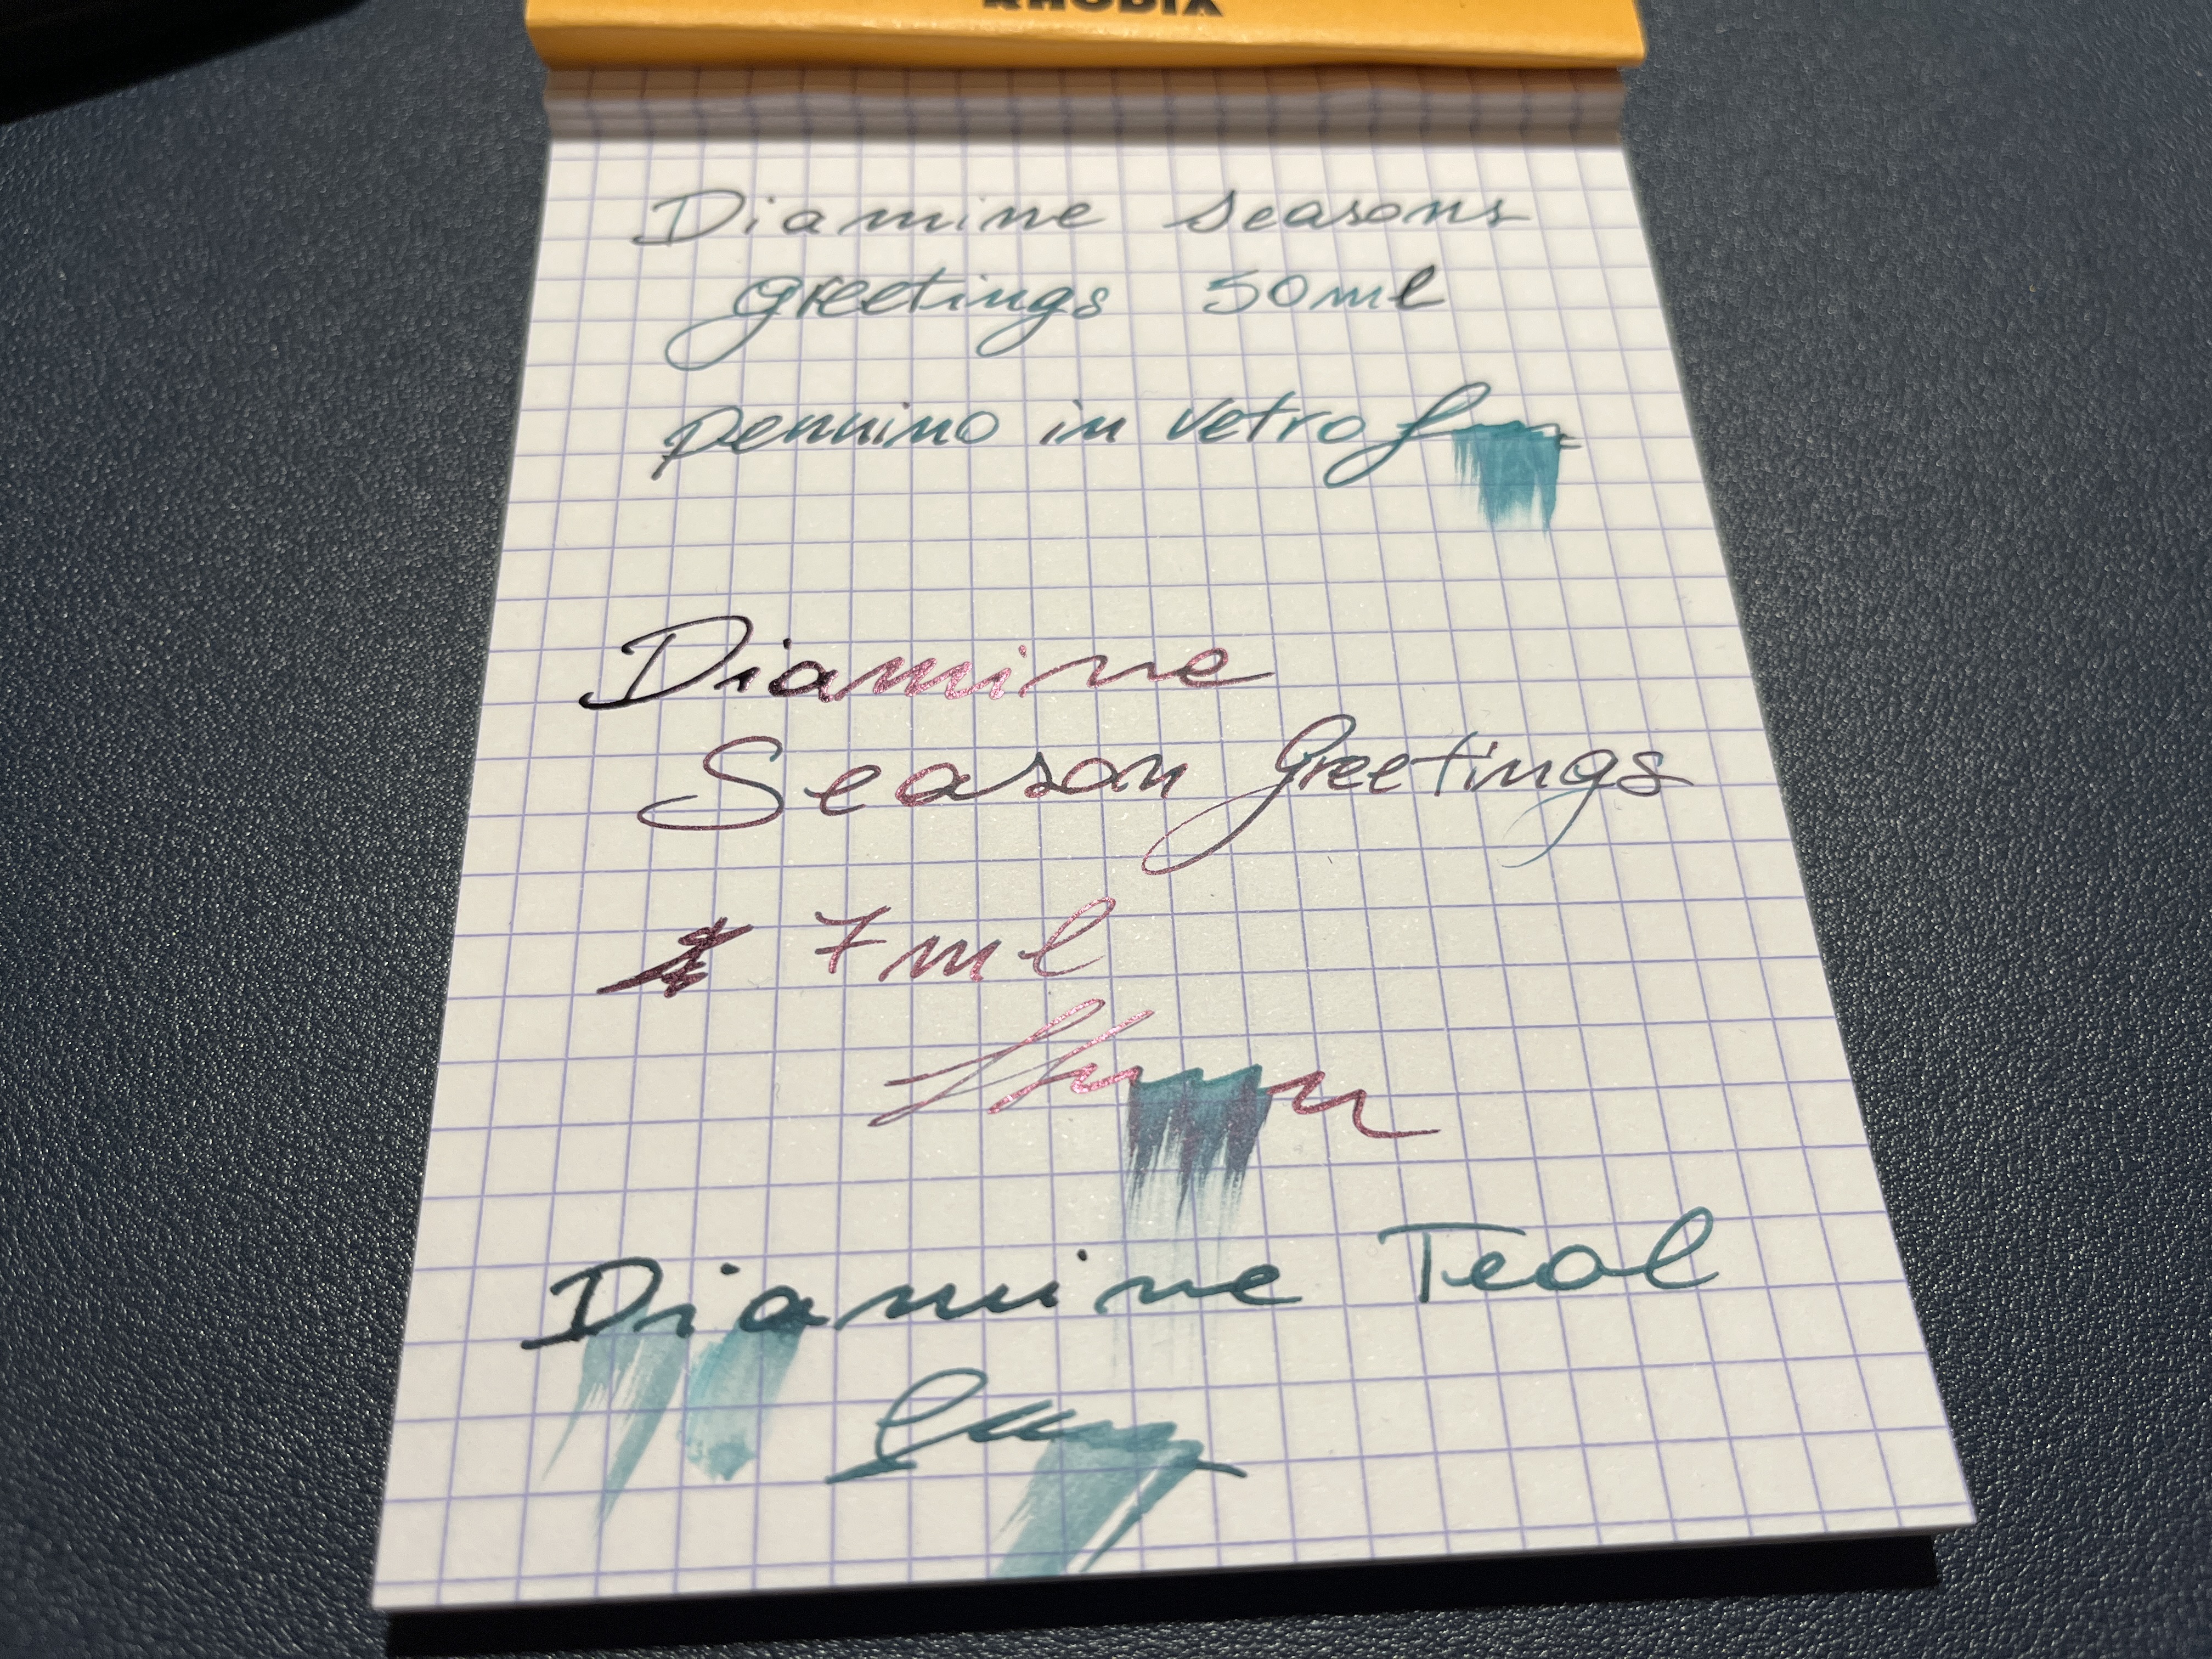 RHODIA
Diamine seasons
greetings 50ml
pennino in vetro
Diamine
Season Greetings
7ml
Diamine Teal